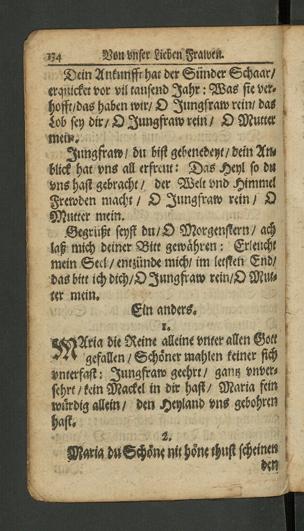 134 Von vnser Lieben Frawen.
Dein Ankunfft hat der Sünder Schaar/
erquicket vor vil tausend Jahr: Was sie ver-
hofft/das haben wir/ O Jungfraw rein/ das
Lob sey dir/ O Jungfraw rein/ O Mutter
mein.
Jungfraw/ du bist gebenedeyt/ dein An-
blick hat vns all erfreut: Das Heyl so du
vns hast gebracht/ der Welt vnd Himmel
Frewden macht/ O Jungfraw rein/ O
Mutter mein.
Gegrüßt seyst du/ O Morgenstern/ ach
laß mich deiner Bitt gewähren: Erleucht
mein Seel/ entzünde mich/ im letsten End/
das bitt ich dich/ O Jungfraw rein/ O Mut-
ter mein.
Ein anders.
1.
MAria die Reine alleine vnter allen Gott
gefallen/ Schöner mahlen keiner sich
vnterfast: Jungfraw geehrt/ gang vnver-
sehrt/ kein Mackel in dir hast/ Maria fein
würdig allein/ den Heyland vns gebohren
hast.
2.
Maria du Schöne nit höne thust scheinen
den